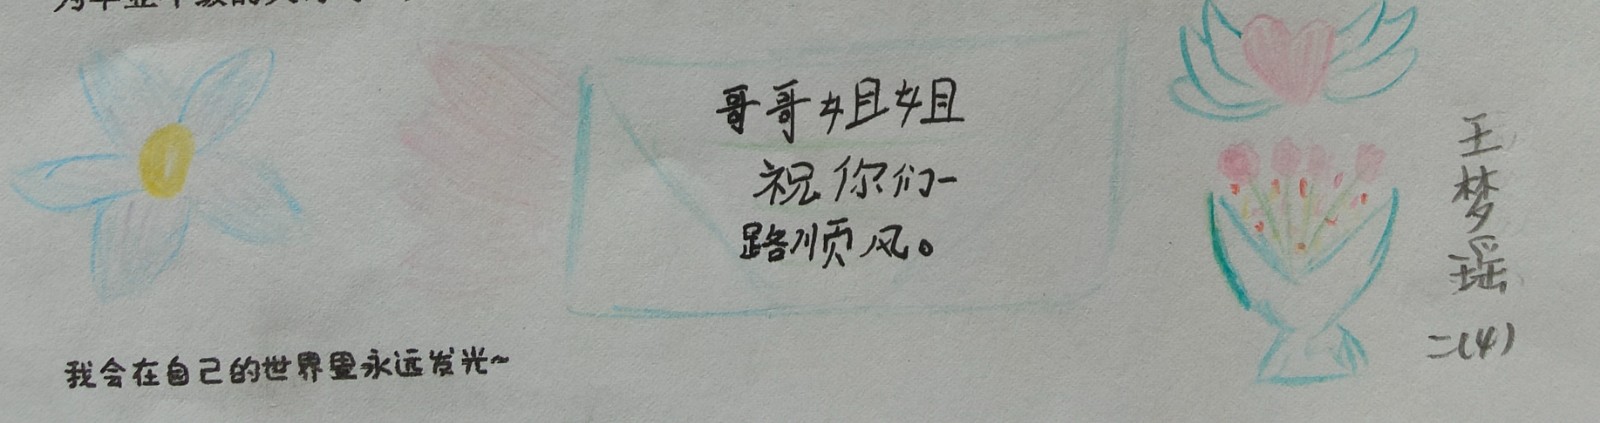 哥哥姐姐
祝你们一
路顺风。
王梦瑶
二(4)
我会在自己的世界里永远发光~